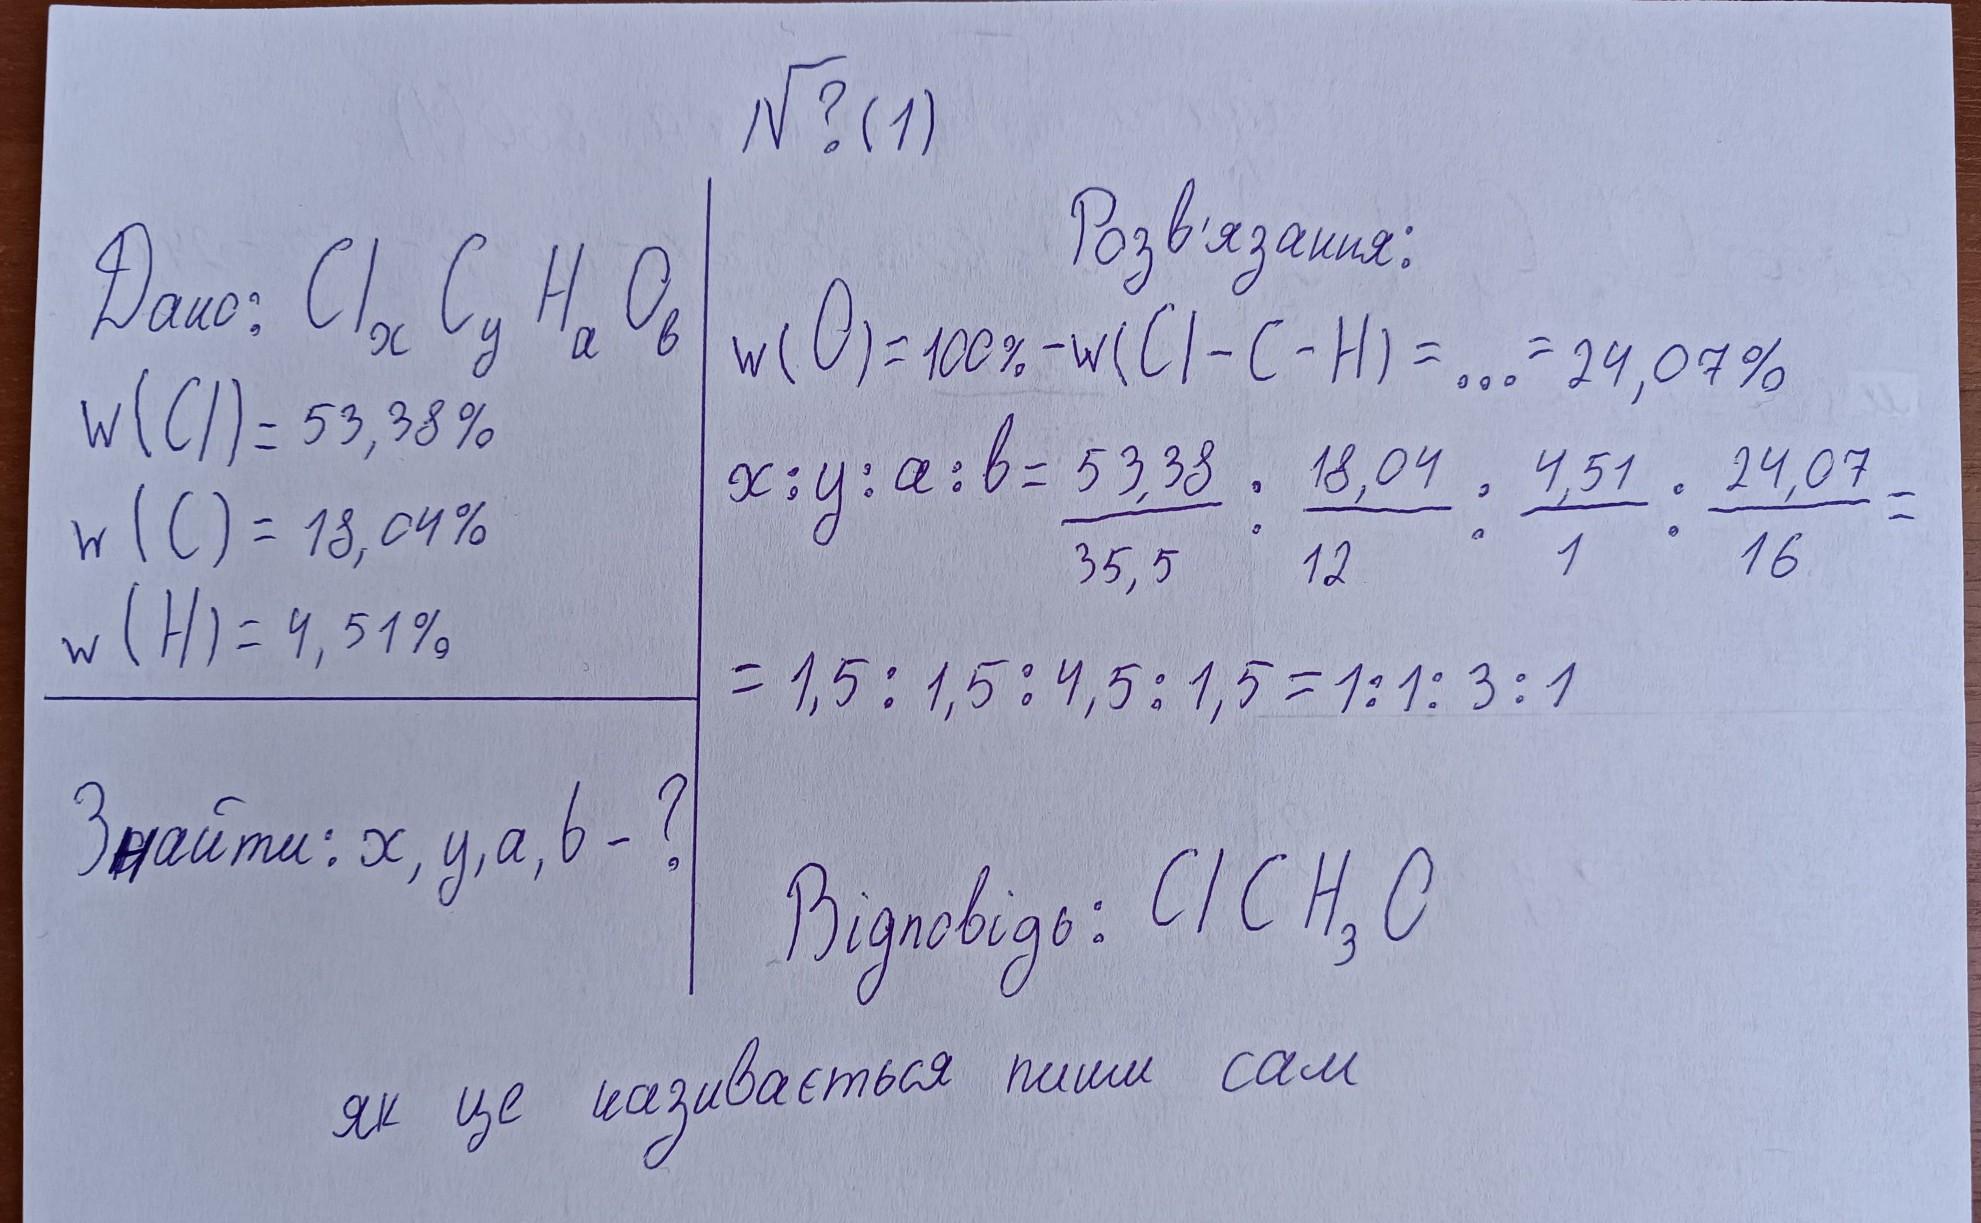 №?(1)
Дано: ClₓCᵧHₐOв
w(Cl)=53,38%
w(C)=18,04%
w(H)=4,51%
Знайти: x, y, a, b - ?
Розв'язання:
w(O)=100%-w(Cl-C-H)=...=24,07%
x:y:a:b= 53,38/35,5 : 18,04/12 : 4,51/1 : 24,07/16 =
=1,5:1,5:4,5:1,5=1:1:3:1
Відповідь: ClCH₃O
як це називається пиши сам